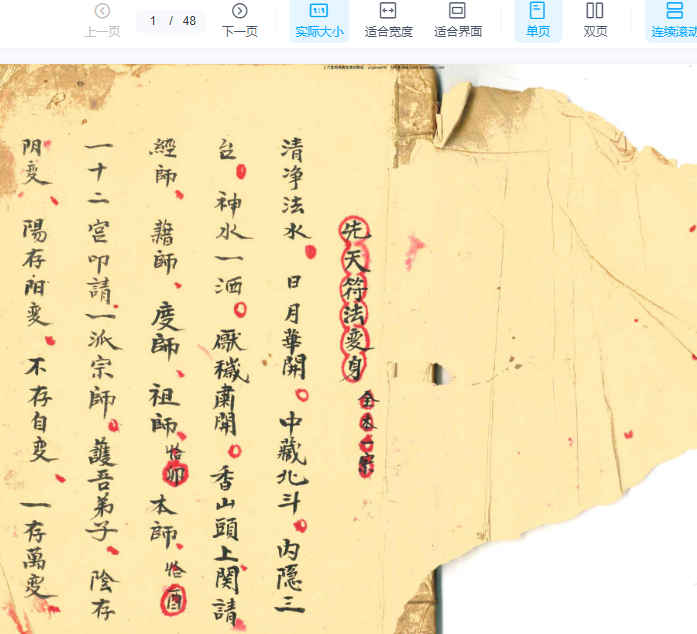 上一页
1 / 48
下一页
实际大小
适合宽度
适合界面
单页
双页
连续滚动
先天符法变身
全本一宗
清净法水 日月華開 中藏北斗 内隐三
台 神水一洒 厭穢肅開 香山頭上関請
經師 籍師 度師 祖師 本師
一十二宫叩請一派宗師 護吾弟子 陰存
阴变 陽存阳变 不存自变 一存萬变